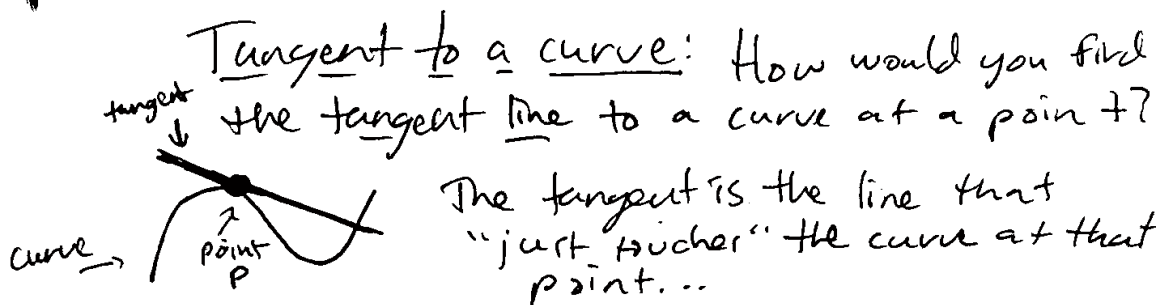 Tangent to a curve: How would you find
the tangent line to a curve at a point?
tangent
The tangent is the line that
"just touches" the curve at that
point...
curve
point
P